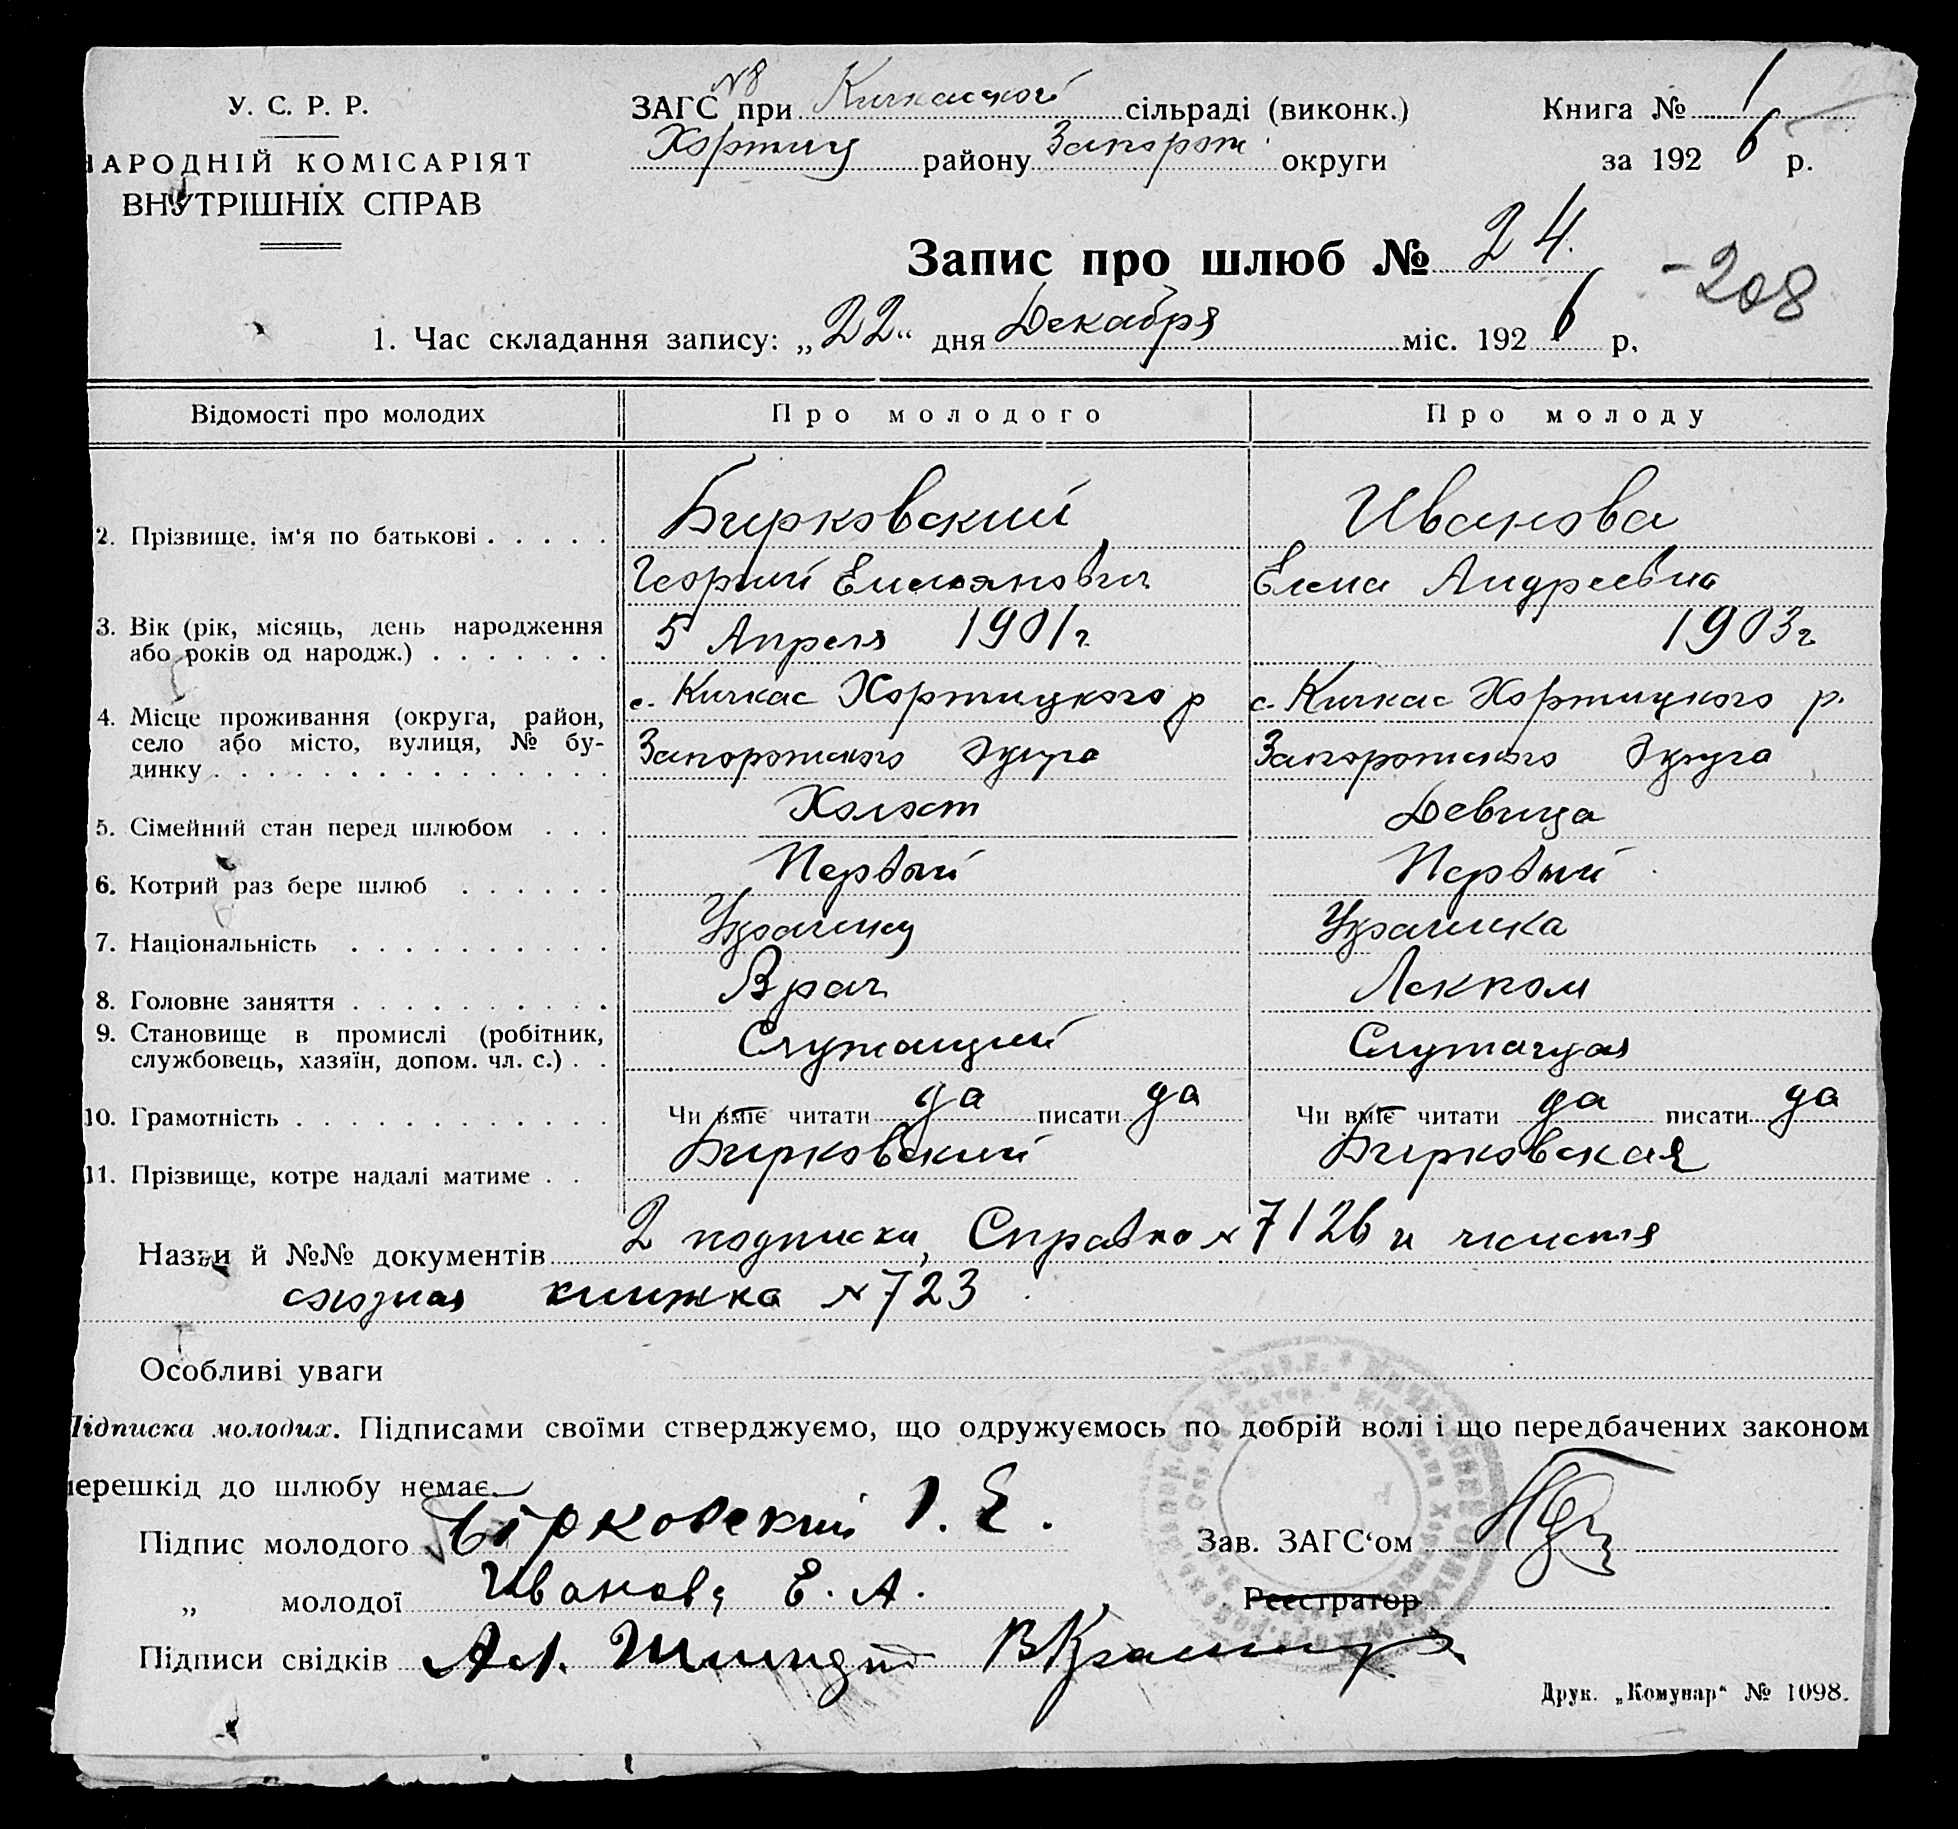 У. С. Р. Р.
НАРОДНІЙ КОМІСАРІЯТ
ВНУТРІШНІХ СПРАВ
ЗАГС №8 при Кичкасской сільраді (виконк.)
Хортиц району Запорож округи
Книга № 1
за 192 6 р.
Запис про шлюб № 24.
-208
1. Час складання запису: „22“ дня Декабря міс. 192 6 р.
Відомості про молодих Про молодого Про молоду
2. Прізвище, ім'я по батькові Бирковский Иванова
Георгий Емельянович Елена Андреевна
3. Вік (рік, місяць, день народження
або років од народж.) 5 Апреля 1901 г. 1903 г
4. Місце проживання (округа, район,
село або місто, вулиця, № бу-
динку
с. Кичкас Хортицкого р с. Кичкас Хортицкого р.
Запорожского Округа Запорожского Округа
5. Сімейний стан перед шлюбом Холост Девица
6. Котрий раз бере шлюб Первый Первый
7. Національність Украинец Украинка
8. Головне заняття Врач Лекпом
9. Становище в промислі (робітник,
службовець, хазяїн, допом. чл. с.) Служащий Служащая
10. Грамотність Чи вміє читати да писати да Чи вміє читати да писати да
11. Прізвище, котре надалі матиме Бирковский Бирковская
Назви й №№ документів 2 подписки, Справка № 7126 и членская
союзная книжка № 723
Особливі уваги
Підписка молодих. Підписами своїми стверджуємо, що одружуємось по добрій волі і що передбачених законом
перешкід до шлюбу немає.
Підпис молодого Бірковский Г. Е.
„ молодої Иванова Е. А.
Підписи свідків Ал.
Зав. ЗАГС'ом
Реєстратор
Друк. „Комунар“ № 1098.